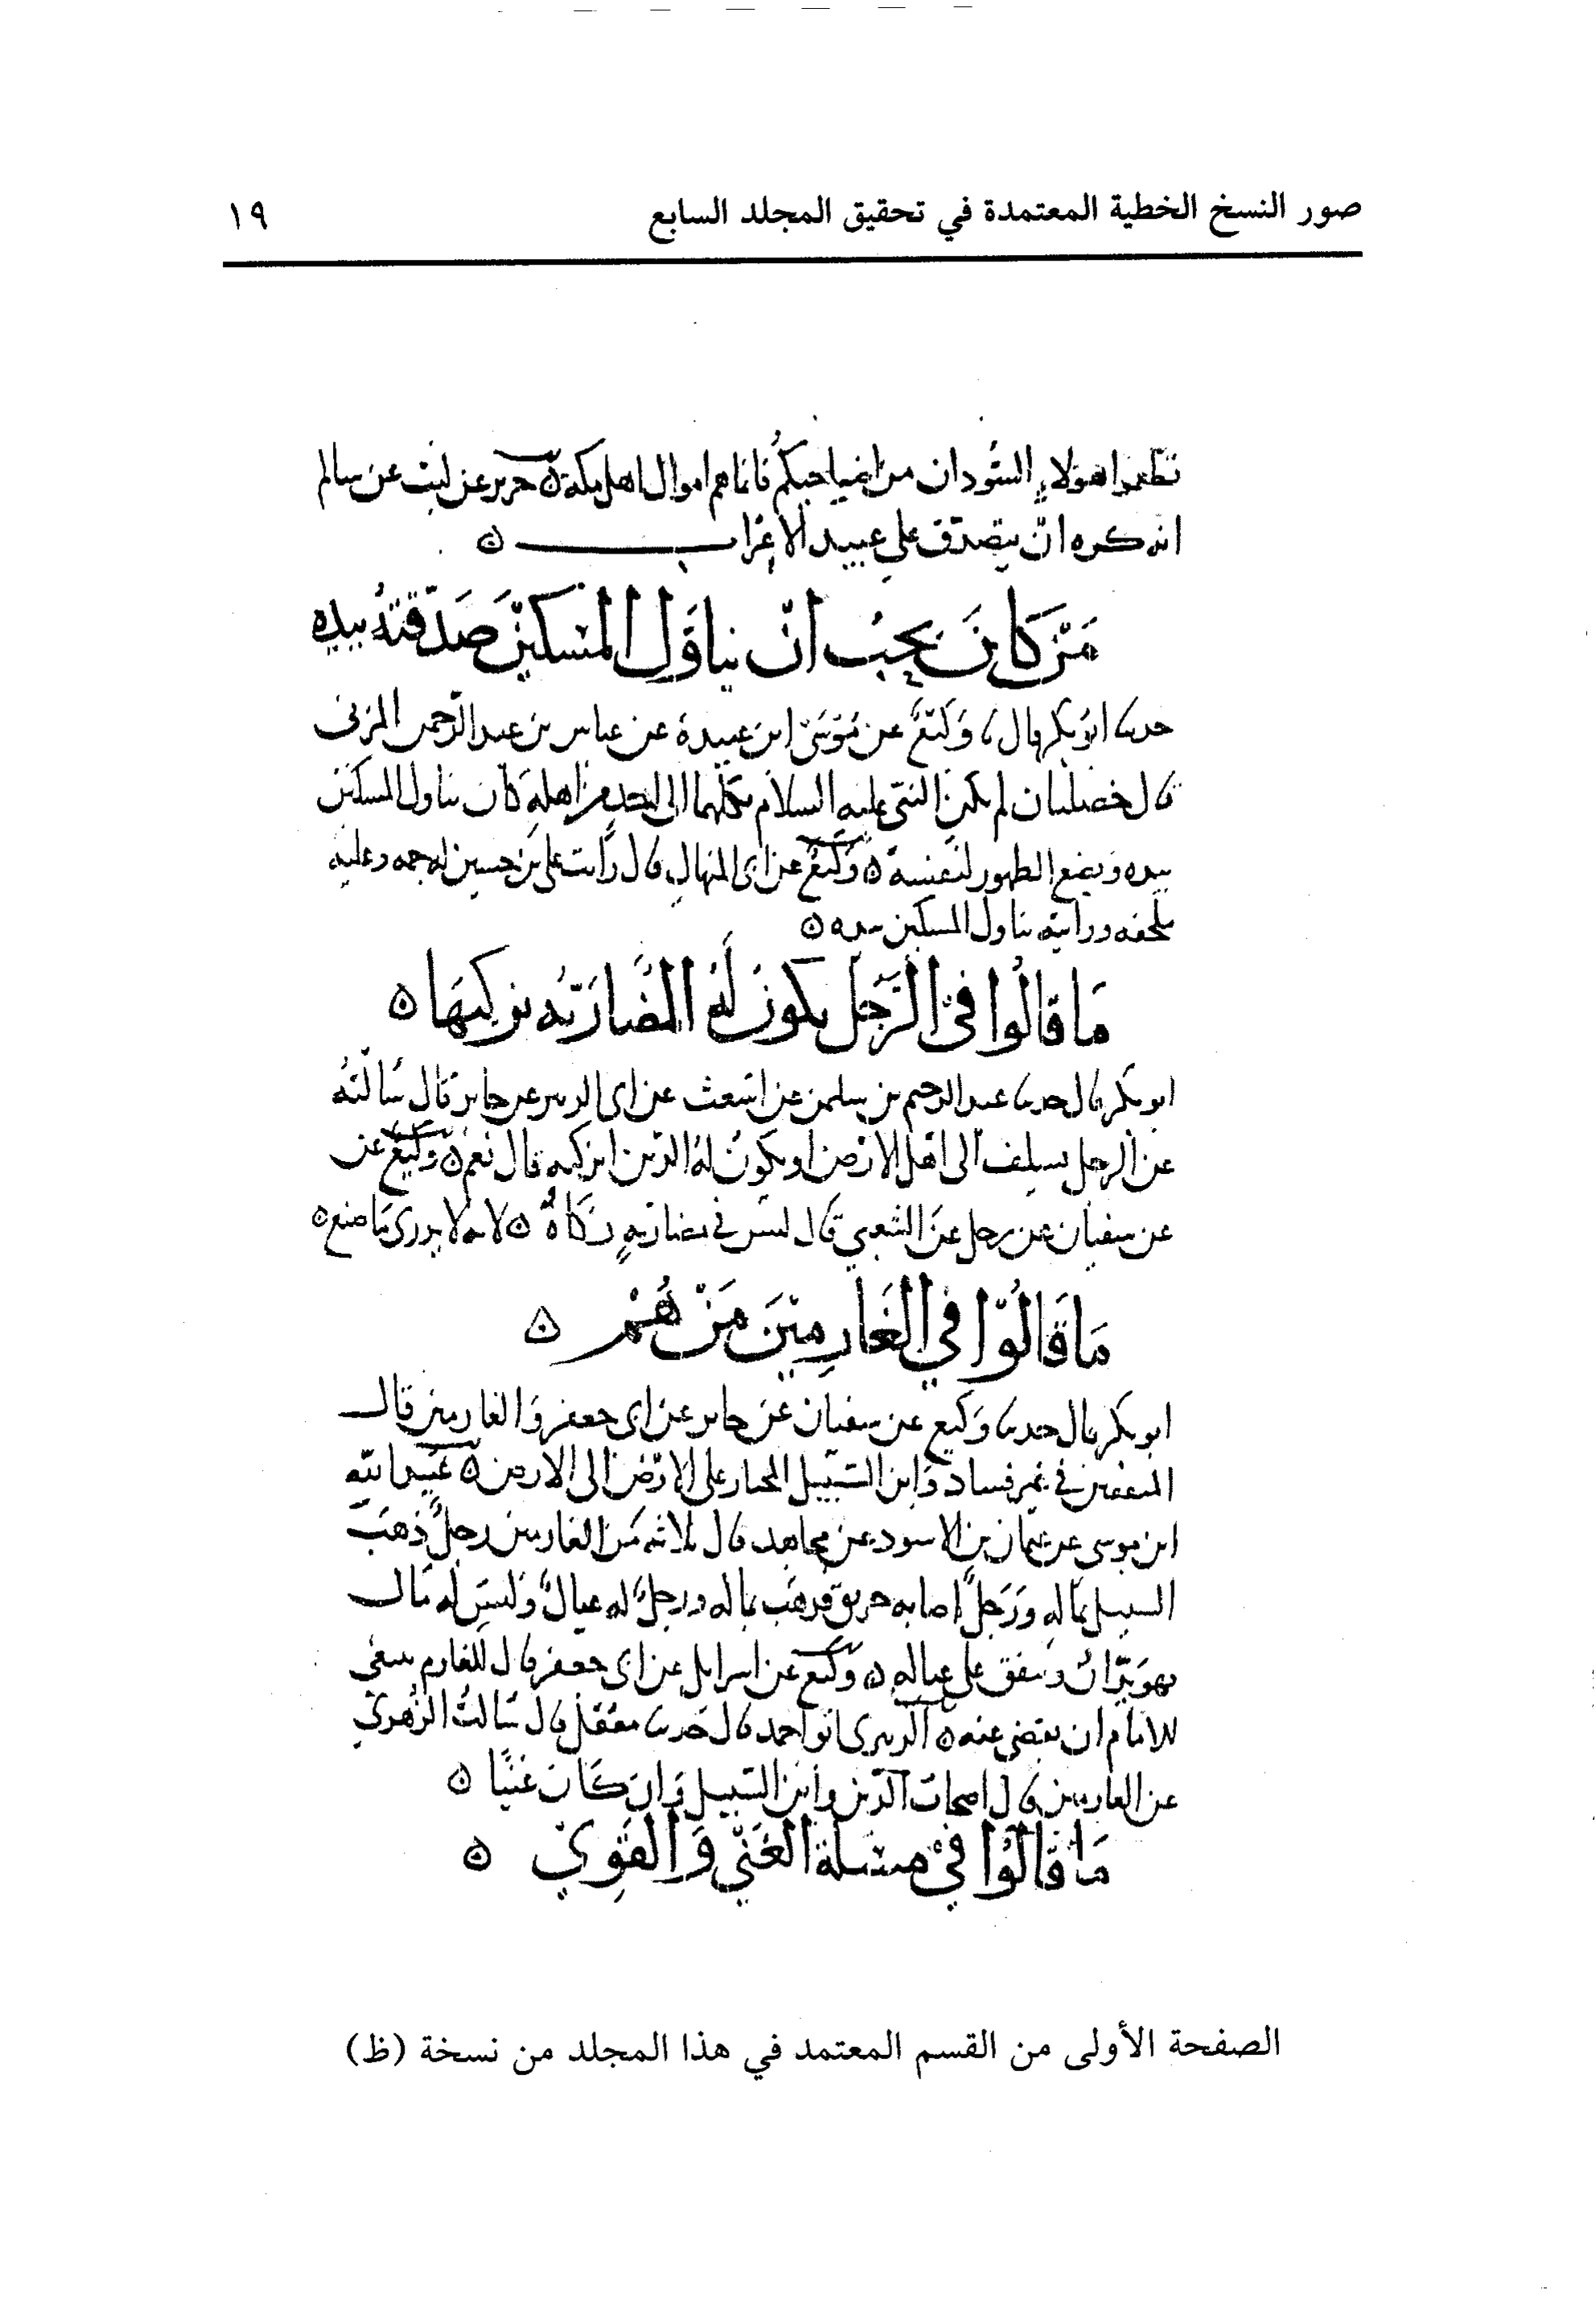 صور النسخ الخطية المعتمدة في تحقيق المجلد السابع
١٩
تطعموا هولاء السودان من اضحياتكم فانما هم اموال اهل مكة ن جرير عن ليث عن سالم
انه كره ان يتصدق على عبيد الاعراب ن
من كان يحب ان يناول المسكين صدقته بيده
حدثنا ابو بكر قال نا وكيع عن موسى ابن عبيدة عن عباس بن عبد الرحمن المزني
قال خصلتان لم يكن النبي عليه السلام يكلهما الى احد من اهله كان يناول المسكين
بيده ويضع الطهور لنفسه ن وكيع عن ابى المنهال قال رايت علي بن حسين له جمه وعليه
ملحفه ورايته يناول المسكين بيده ن
ما قالوا في الرجل يكون له المضاربه يزكيها ن
ابو بكر قال حدثنا عبد الرحيم بن سليمن عن اشعث عن ابى الزبير عن جابر قال سالته
عن الرجل يسلف الى اهل الارض او يكون له الدين ايزكيه قال نعم ن وكيع عن
عن سفيان عن رجل عن الشعبي قال ليس في مضاربه زكاة ن لانه لا يدرى ما صنع ن
ما قالوا في الغارمين من هم ن
ابو بكر قال حدثنا وكيع عن سفيان عن جابر عن ابى جعفر والغارمين قال
المنفقين في غير فساد وابن السبيل المجتاز على الارض الى الارض ن عبيد الله
ابن موسى عن عثمان بن الاسود عن مجاهد قال ثلاثه من الغارمين رجل ذهب
السيل بماله ورجل اصابه حريق فذهب بماله ورجل له عيال وليس له مال
فهو يدان وينفق على عياله ن وكيع عن اسرائل عن ابى جعفر قال للغارم ينبغي
للامام ان يقضي عنه ن الزبيرى ابو احمد قال حدثنا معقل قال سالت الزهري
عن الغارمين قال اصحاب الدين وابن السبيل وان كان غنيا ن
ما قالوا في مسلة الغني والقوي ن
الصفحة الأولى من القسم المعتمد في هذا المجلد من نسخة (ظ)